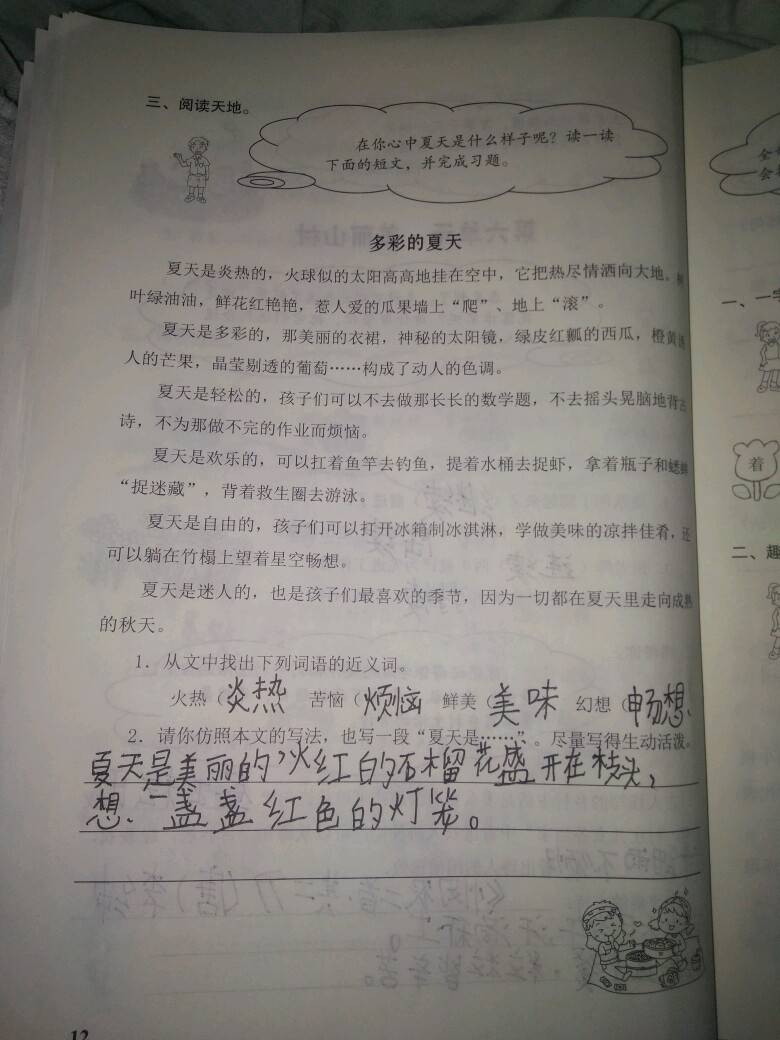 三、阅读天地。
在你心中夏天是什么样子呢？读一读
下面的短文，并完成习题。
多彩的夏天
夏天是炎热的，火球似的太阳高高地挂在空中，它把热尽情洒向大地。树
叶绿油油，鲜花红艳艳，惹人爱的瓜果墙上“爬”、地上“滚”。
夏天是多彩的，那美丽的衣裙，神秘的太阳镜，绿皮红瓤的西瓜，橙黄诱
人的芒果，晶莹剔透的葡萄……构成了动人的色调。
夏天是轻松的，孩子们可以不去做那长长的数学题，不去摇头晃脑地背古
诗，不为那做不完的作业而烦恼。
夏天是欢乐的，可以扛着鱼竿去钓鱼，提着水桶去捉虾，拿着瓶子和蟋蟀
“捉迷藏”，背着救生圈去游泳。
夏天是自由的，孩子们可以打开冰箱制冰淇淋，学做美味的凉拌佳肴，还
可以躺在竹榻上望着星空畅想。
夏天是迷人的，也是孩子们最喜欢的季节，因为一切都在夏天里走向成熟
的秋天。
1．从文中找出下列词语的近义词。
火热（炎热 苦恼（烦恼 鲜美（美味 幻想（畅想
2．请你仿照本文的写法，也写一段“夏天是……”。尽量写得生动活泼。
夏天是美丽的，火红的石榴花盛开在枝头，
想一盏盏红色的灯笼。
12
一、一字
着
二、趣